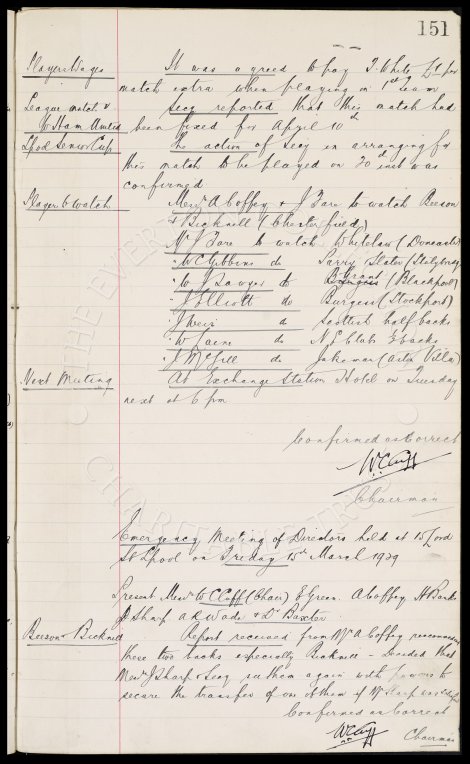 151
Players Wages It was agreed to pay J. White £1 per
match extra when playing in 1st team
League match v Secy reported that this match had
W Ham United been fixed for April 10th
Lpool Senior Cup The action of Secy in arranging for
this match to be played on 20th inst was
confirmed
Players to watch Messrs A Coffey & J Fare to watch Beeson
& Bicknell (Chesterfield)
Mr J Fare to watch Whitelaw (Doncaster)
" W C Gibbins do Perry Slater (Stalybridge)
" W J Sawyer do Grant (Blackpool)
J Elliott do Burgess (Stockport)
J Weir do Scottish half backs
" W Laine do N E Clubs & backs
" J McGill do Jakeman (Aston Villa)
Next Meeting At Exchange Station Hotel on Tuesday
next at 6 pm
Confirmed as Correct
W. C. Cuff
Chairman
Emergency Meeting of Directors held at 15 Lord
St Lpool on Friday 15th March 1929
Present Messrs W C Cuff (Chair) E Green. A Coffey H Banks
J Sharp A R Wade & Dr Baxter
Beeson & Bicknell Report received from Mr A Coffey recommending
these two backs especially Bicknell – Decided that
Messrs J Sharp & Secy see them again with powers to
secure the transfer of one of them if Mr Sharp was
Confirmed as Correct
W. C. Cuff
Chairman
THE EVERTON
CHARITABLE TRUST